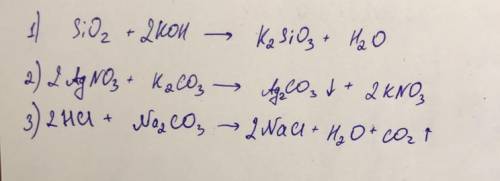 1) SiO₂ + 2KOH ⟶ K₂SiO₃ + H₂O
2) 2AgNO₃ + K₂CO₃ ⟶ Ag₂CO₃↓ + 2KNO₃
3) 2HCl + Na₂CO₃ ⟶ 2NaCl + H₂O + CO₂↑